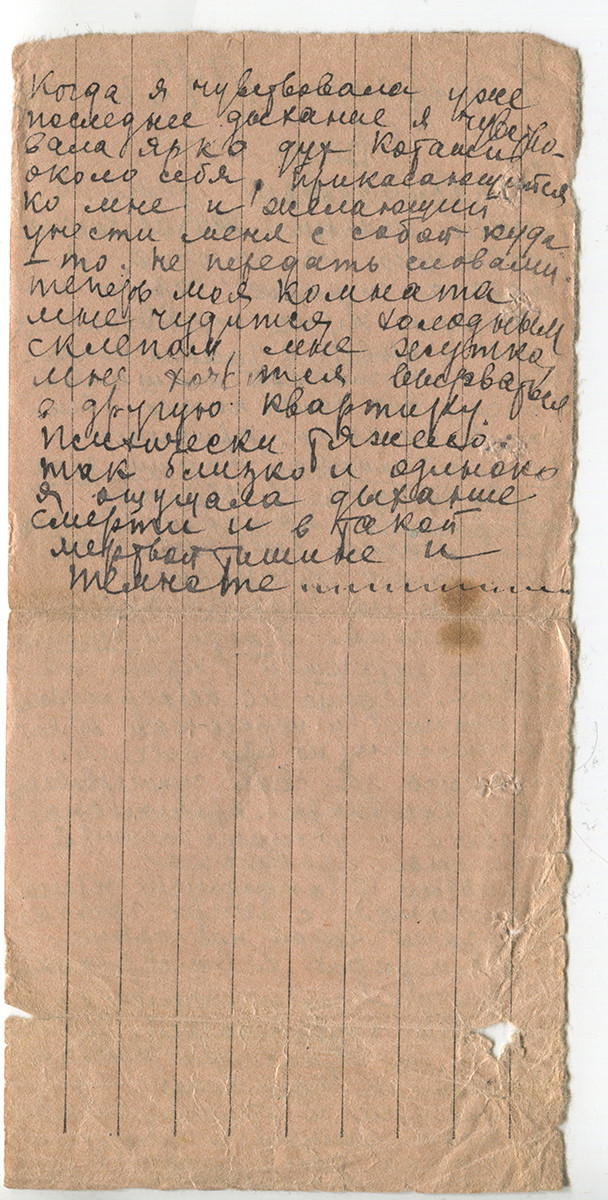 Когда я чувствовала уже
последнее дыхание я чувство-
вала ярко дух
около себя, прикасающийся
ко мне и желающий
унести меня с собой куда
-то. не передать словами.
теперь моя комната
мне чудится холодным
склепом, мне жутко,
мне хочется вырваться
в другую квартиру
психически тяжело.
так близко и одиноко
я ощущала дыхание
смерти и в такой
мертвой тишине и
темноте ................